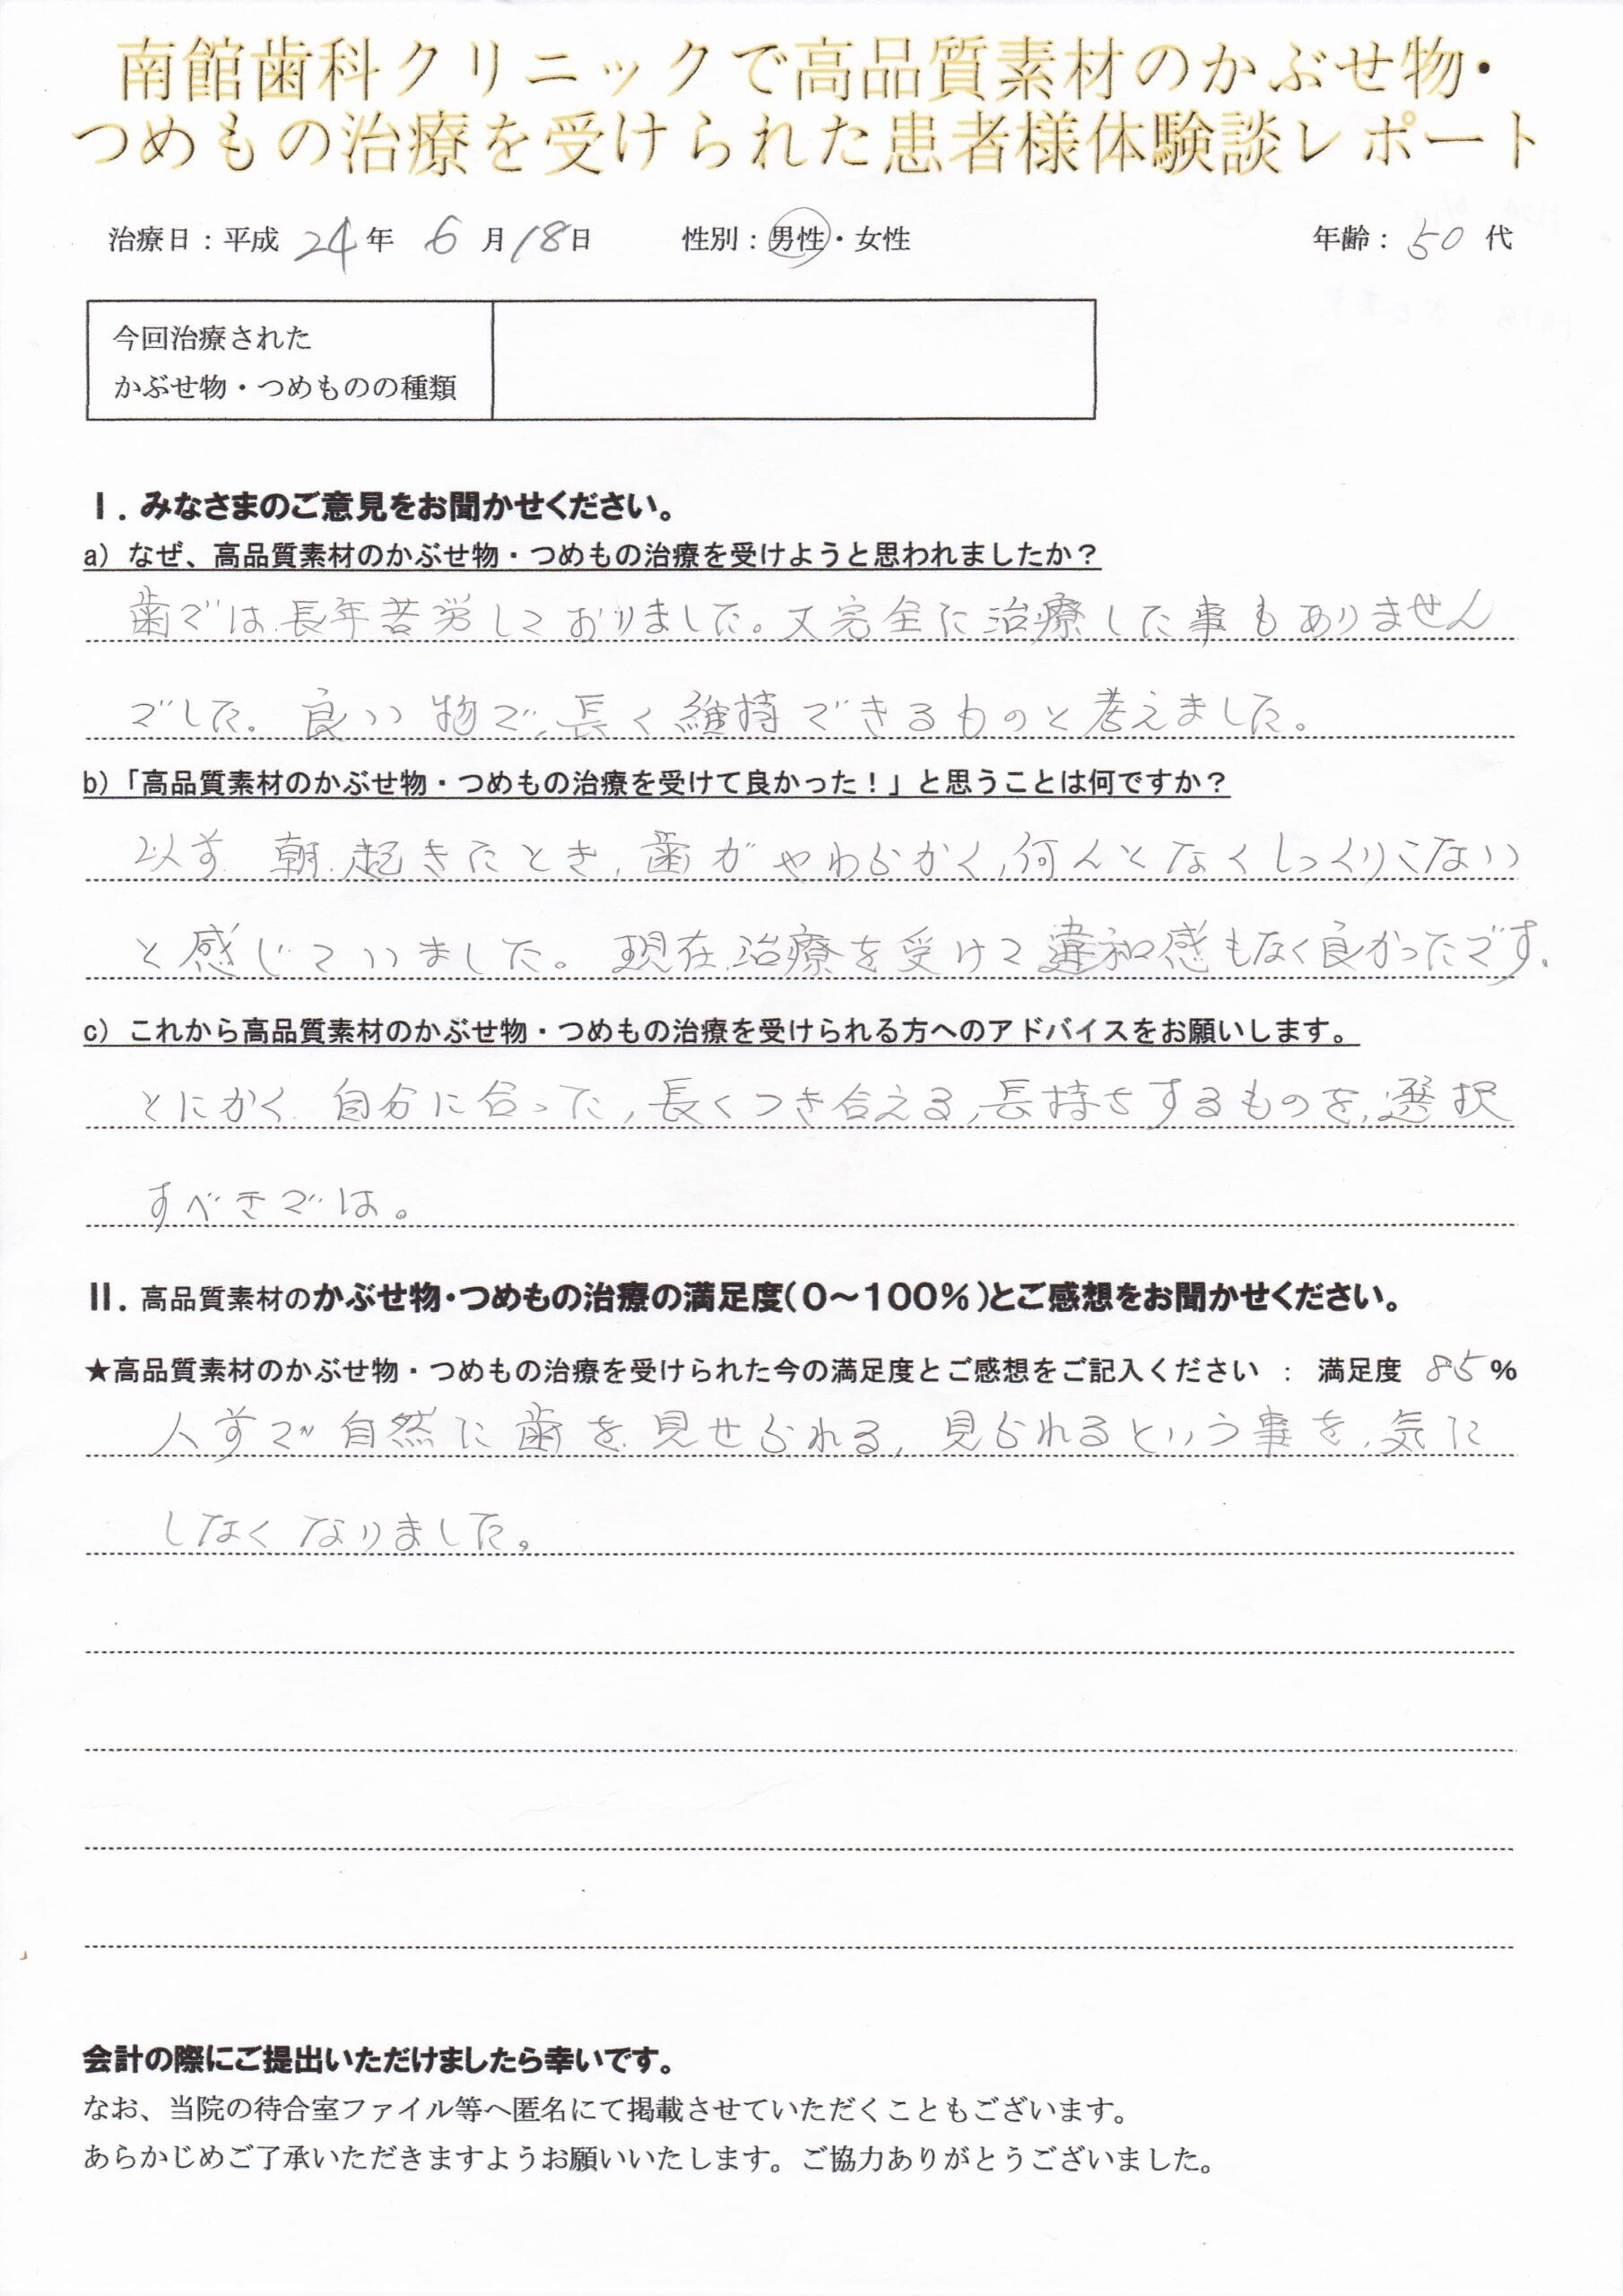 南館歯科クリニックで高品質素材のかぶせ物・
つめもの治療を受けられた患者様体験談レポート
治療日：平成 24 年 6 月 18 日 性別：男性・女性 年齢：50 代
今回治療された
かぶせ物・つめものの種類
Ⅰ．みなさまのご意見をお聞かせください。
a）なぜ、高品質素材のかぶせ物・つめもの治療を受けようと思われましたか？
歯では、長年苦労しておりました。又完全に治療した事もありません
でした。良い物で、長く維持できるものと考えました。
b）「高品質素材のかぶせ物・つめもの治療を受けて良かった！」と思うことは何ですか？
以前、朝、起きたとき、歯がやわらかく、何んとなくしっくりこない
と感じていました。現在、治療を受けて違和感もなく良かったです。
c）これから高品質素材のかぶせ物・つめもの治療を受けられる方へのアドバイスをお願いします。
とにかく、自分に合った、長くつき合える、長持ちするものを、選択
すべきでは。
Ⅱ．高品質素材のかぶせ物・つめもの治療の満足度（０～１００％）とご感想をお聞かせください。
★高品質素材のかぶせ物・つめもの治療を受けられた今の満足度とご感想をご記入ください ： 満足度 85 %
人前で自然に歯を、見せられる、見られるという事を、気に
しなくなりました。
会計の際にご提出いただけましたら幸いです。
なお、当院の待合室ファイル等へ匿名にて掲載させていただくこともございます。
あらかじめご了承いただきますようお願いいたします。ご協力ありがとうございました。